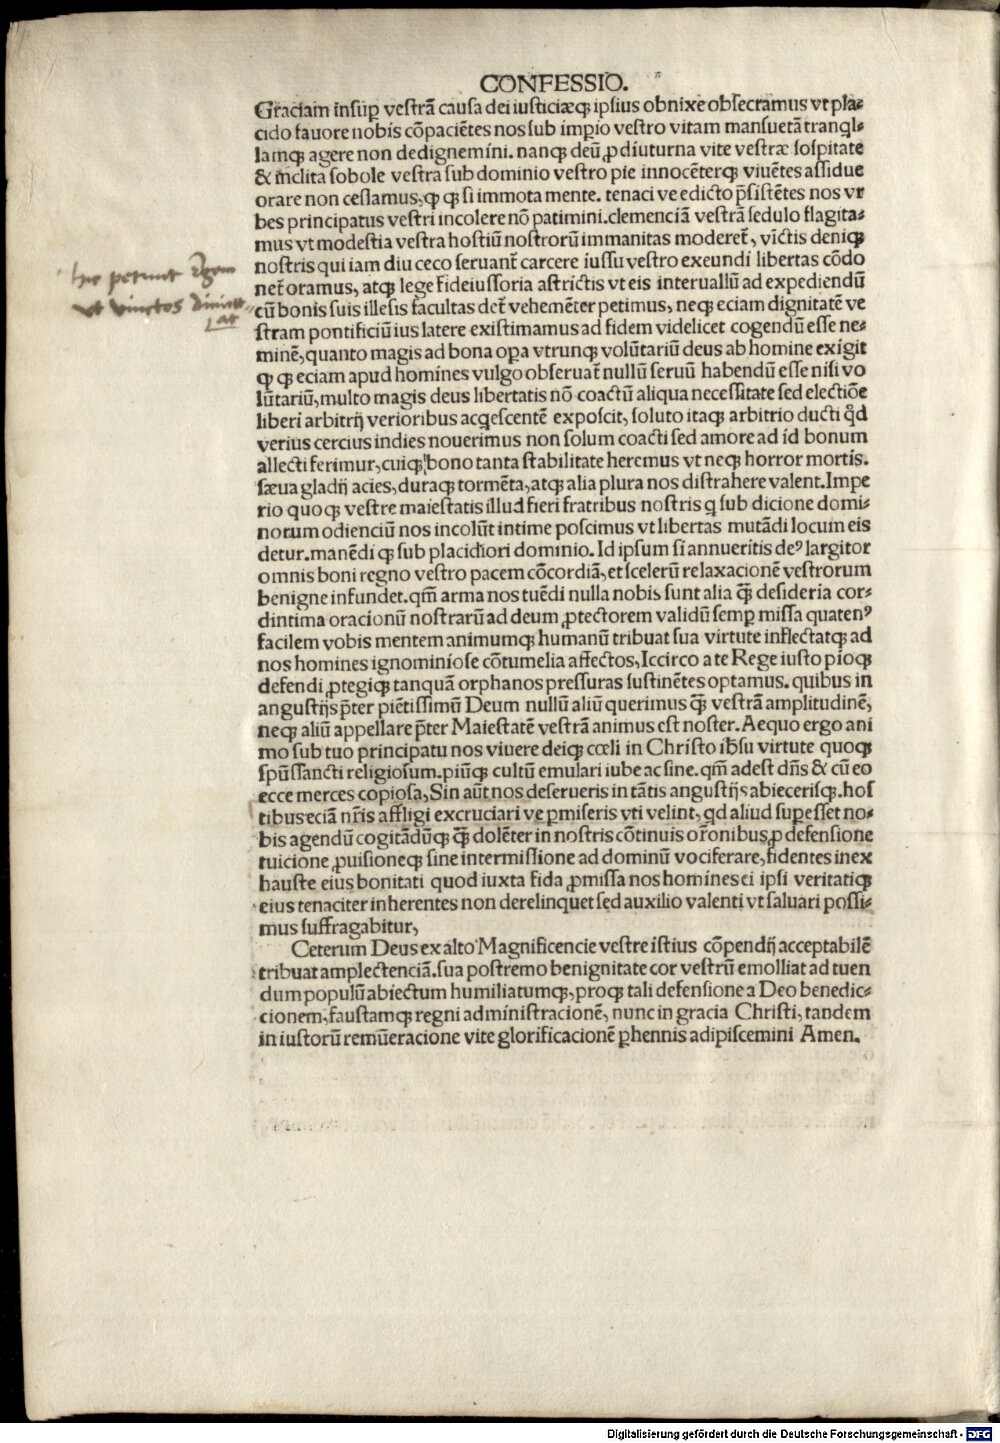 CONFESSIO.
Graciam insup̱ vestrā causa dei iusticiæq; ipsius obnixe obsecramus vt pla⸗
cido fauore nobis cōpaciētes nos sub imp̱io vestro vitam mansuetā tranq̇l⸗
lamq; agere non dedignemini. nanq; deū ꝓ diuturna vite vestræ sospitate
& inclita sobole vestra sub dominio vestro pie innocēterq; viuētes assidue
orare non cessamus, ꝙ ꝙ si immota mente. tenaci ve edicto p̄sistētes nos vr
bes principatus vestri incolere nō patimini. clemenciā vestrā sedulo flagita⸗
mus vt modestia vestra hostiū nostrorū immanitas moderet̄, victis deniq;
hic petunt Regem
nostris qui iam diu ceco seruant̄ carcere iussu vestro exeundi libertas cōdo
net̄ oramus, atq; lege fideiussoria astrictis vt eis interuallū ad expediendū
vt vinctos dimitt⸗
at
cū bonis suis illesis facultas det̄ vehemēter petimus, neq; eciam dignitatē ve
stram pontificiū ius latere existimamus ad fidem videlicet cogendū esse ne⸗
minē, quanto magis ad bona op̱a vtrunq; volūtariū deus ab homine exigit
ꝙ ꝙ eciam apud homines vulgo obseruat̄ nullū seruū habendū esse nisi vo
lūtariū, multo magis deus libertatis nō coactū aliqua necessitate sed electiōe
liberi arbitrij verioribus acq̇escentē exposcit, soluto itaq; arbitrio ducti q̇d
verius cercius indies nouerimus non solum coacti sed amore ad id bonum
allecti ferimur, cuiq; bono tanta stabilitate heremus vt neq; horror mortis.
sæua gladij acies, duraq; tormēta, atq; alia plura nos distrahere valent. Impe
rio quoq; vestre maiestatis illud fieri fratribus nostris q̇ sub dicione domi⸗
norum odienciū nos incolūt intime poscimus vt libertas mutādi locum eis
detur. manēdi q; sub placidiori dominio. Id ipsum si annueritis deꝰ largitor
omnis boni regno vestro pacem cōcordiā, et scelerū relaxacionē vestrorum
benigne infundet. qm̄ arma nos tuēdi nulla nobis sunt alia q̄ꝫ desideria cor⸗
dintima oracionū nostrarū ad deum ꝓtectorem validū semp̱ missa quatenꝰ
facilem vobis mentem animumq; humanū tribuat sua virtute inflectatq; ad
nos homines ignominiose cōtumelia affectos, Iccirco a te Rege iusto pioq;
defendi ꝓtegiq; tanquā orphanos pressuras sustinētes optamus. quibus in
angustijs p̄ter piētissimū Deum nullū aliū querimus q̄ꝫ vestrā amplitudinē,
neq; aliū appellare p̄ter Maiestatē vestrā animus est noster. Aequo ergo ani
mo sub tuo principatu nos viuere deiq; cœli in Christo ih̄su virtute quoq;
sp̄ussancti religiosum. piūq; cultū emulari iube ac sine. qm̄ adest dn̄s & cū eo
ecce merces copiosa, Sin aūt nos deserueris in tātis angustijs abiecerisq;. hos
tibus eciā nr̄is affligi excruciari ve p̱miseris vti velint, qd aliud sup̱esset no⸗
bis agendū cogitādūq; q̄ꝫ dolēter in nostris cōtinuis or̄onibus ꝓ defensione
tuicione ꝓuisioneq; sine intermissione ad dominū vociferare, fidentes inex
hauste eius bonitati quod iuxta fida ꝓmissa nos homines ei ipsi veritatiq;
eius tenaciter inherentes non derelinquet sed auxilio valenti vt saluari possi⸗
mus suffragabitur,
Ceterum Deus ex alto Magnificencie vestre istius cōpendij acceptabilē
tribuat amplectenciā. sua postremo benignitate cor vestrū emolliat ad tuen
dum populū abiectum humiliatumq;, proq; tali defensione a Deo benedic⸗
cionem, faustamq; regni administracionē, nunc in gracia Christi, tandem
in iustorū remūeracione vite glorificacionē p̱hennis adipiscemini Amen.
Digitalisierung gefördert durch die Deutsche Forschungsgemeinschaft - DFG